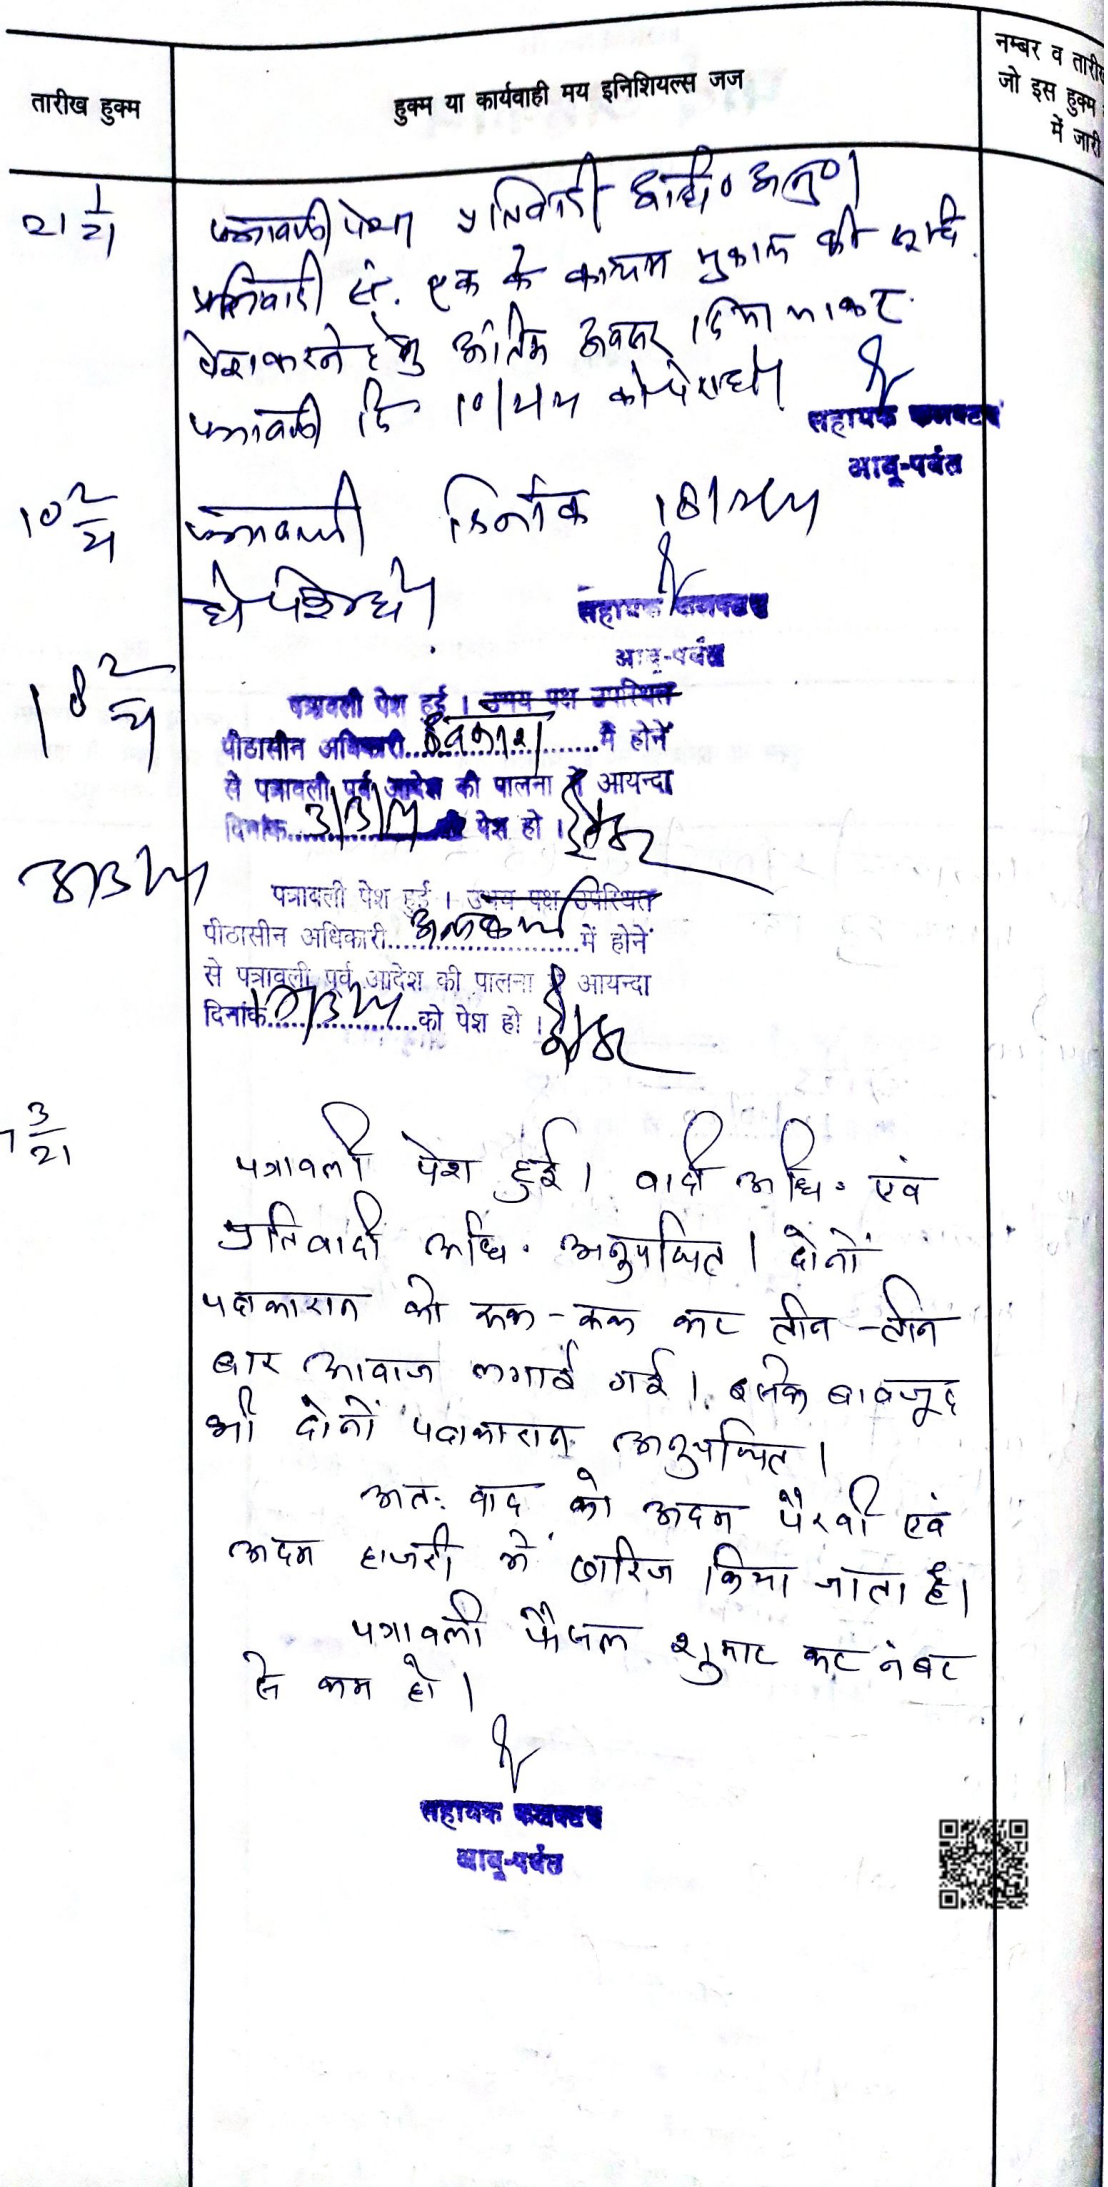 तारीख हुक्म
हुक्म या कार्यवाही मय इनिशियल्स जज
नम्बर व तारीख
जो इस हुक्म
में जारी
21 1/21
पत्रावली पेश। प्रतिवादी अधि० अनु०।
प्रतिवादी सं. एक के कायम मुकाम की
पेश करने हेतु अंतिम अवसर दिया जाकर
पत्रावली दि को पेश हो।
सहायक कलक्टर
आबू-पर्वत
10 2/21
पत्रावली दिनांक
को पेश हो।
सहायक कलक्टर
आबू-पर्वत
18 2/21
पत्रावली पेश हुई । उभय पक्ष उपस्थित
पीठासीन अधिकारी अवकाश में होनें
से पत्रावली पूर्व आदेश की पालना में आयन्दा
दिनांक 3/3/21 को पेश हो ।
3/3/21
पत्रावली पेश हुई । उभय पक्ष उपस्थित
पीठासीन अधिकारी में होनें
से पत्रावली पूर्व आदेश की पालना में आयन्दा
दिनांक को पेश हो ।
3/21
पत्रावली पेश हुई। वादी अधि. एवं
प्रतिवादी अधि. अनुपस्थित। दोनों
पक्षकारान को एक-एक कर तीन-तीन
बार आवाज लगाई गई। इसके बावजूद
भी दोनों पक्षकारान अनुपस्थित।
अतः वाद को अदम पैरवी एवं
अदम हाजरी में खारिज किया जाता है।
पत्रावली फैसल शुमार कर नंबर
से कम हो।
सहायक कलक्टर
आबू-पर्वत